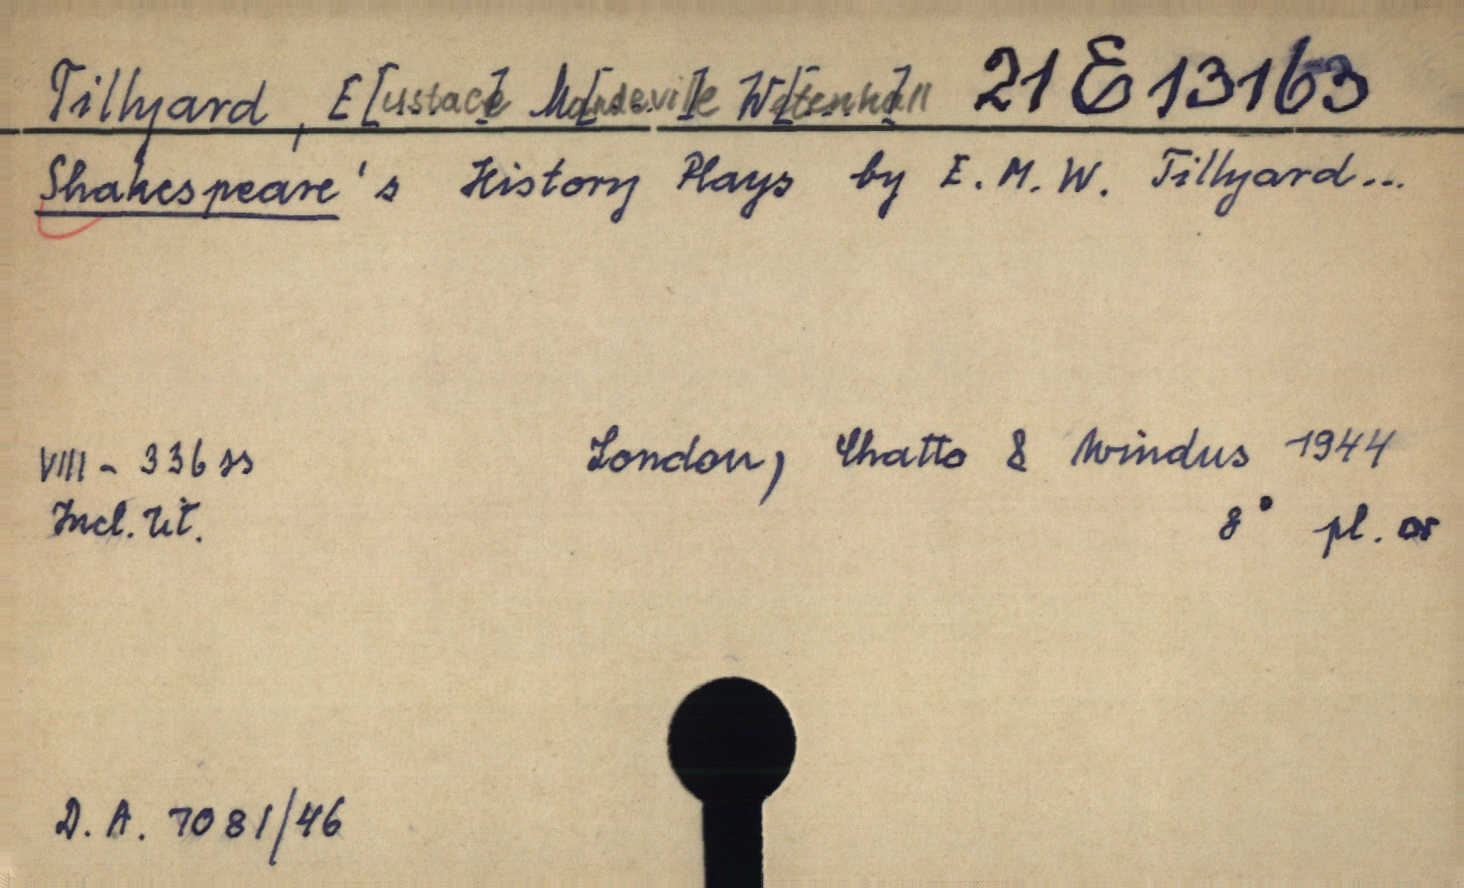 Tillyard, E[ustace] M[andeville] W[etenhall] 21 E 13163
Shakespeare's History Plays by E. M. W. Tillyard...
VIII - 336 ss London, Chatto & Windus 1944
Incl. tit. 8° pl. or
D. A. 7081/46